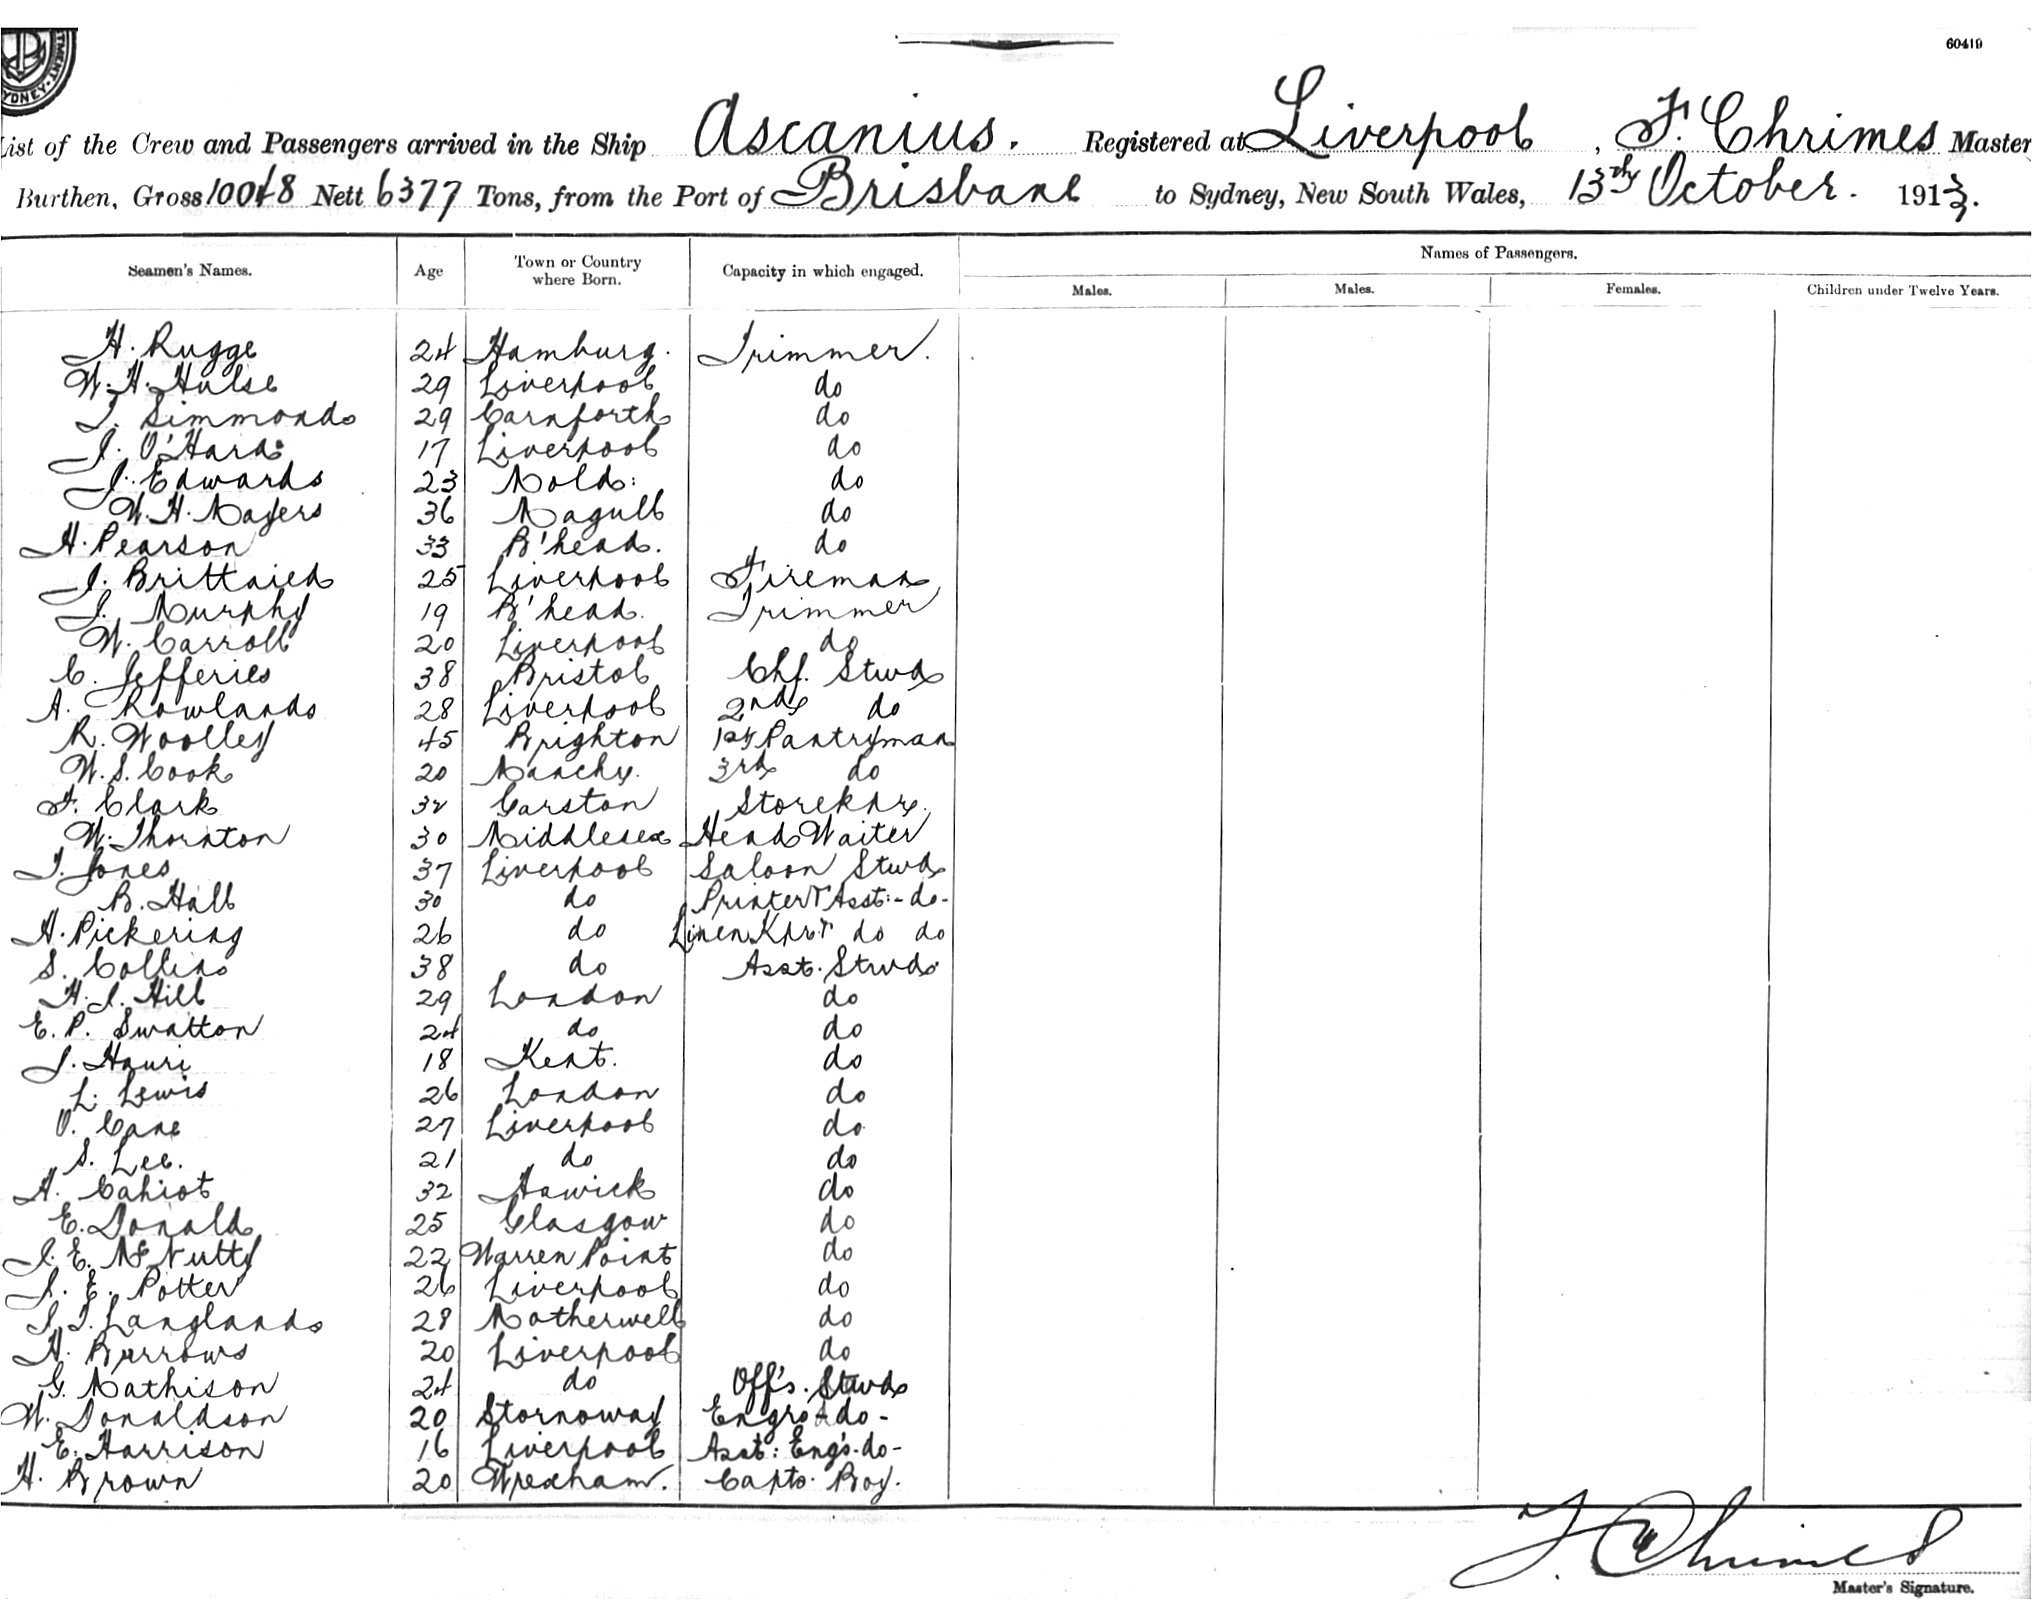 TMENT
YDNEY.
60419
List of the Crew and Passengers arrived in the Ship Ascanius. Registered at Liverpool, F. Chrimes Master
Burthen, Gross 10048 Nett 6377 Tons, from the Port of Brisbane to Sydney, New South Wales, 13th October. 1913.
Names of Passengers.
Seamen's Names. Age Town or Country where Born. Capacity in which engaged.
Males. Males. Females. Children under Twelve Years.
H. Rugge 24 Hamburg. Trimmer.
W. H. Hulse 29 Liverpool do
T. Simmonds 29 Carnforth do
J. O'Hara 17 Liverpool do
J. Edwards 23 Mold: do
W. H. Mayers 36 Magull do
H. Pearson 33 B'head. do
J. 25 Liverpool Fireman
J. Murphy 19 B'head. Trimmer
W. Carroll 20 Liverpool do
C. Jefferies 38 Bristol Chf. Stwd
A. Rowlands 28 Liverpool 2nd do
R. Woolley 45 Brighton 1st Pantryman
W. S. Cook 20 Manchr. 3rd do
F. Clark 32 Garston Storekpr.
W. Thornton 30 Middlesex Head Waiter
T. Jones 37 Liverpool Saloon Stwd
B. Hall 30 do Printer & Asst:- do-
H. Pickering 26 do Linen Kpr & do do
S. Collins 38 do Asst. Stwd
H. J. Hill 29 London do
E. P. Swatton 24 do do
J. Hauri 18 Kent. do
L. Lewis 26 London do
O. Cane 27 Liverpool do
S. Lee. 21 do do
H. Cahiot 32 Hawick do
E. Donald 25 Glasgow do
J. E. McNutty 22 Warren Point do
J. E. Potter 26 Liverpool do
J. T. Langlands 28 Motherwell do
H. Burrows 20 Liverpool do
G. Mathison 24 do Off's. Stwd
W. Donaldson 20 Stornoway Engrs - do -
E. Harrison 16 Liverpool Asst: Eng's. do-
H. Brown 20 Wrexham. Capts. Boy.
F. Chrimes
Master's Signature.